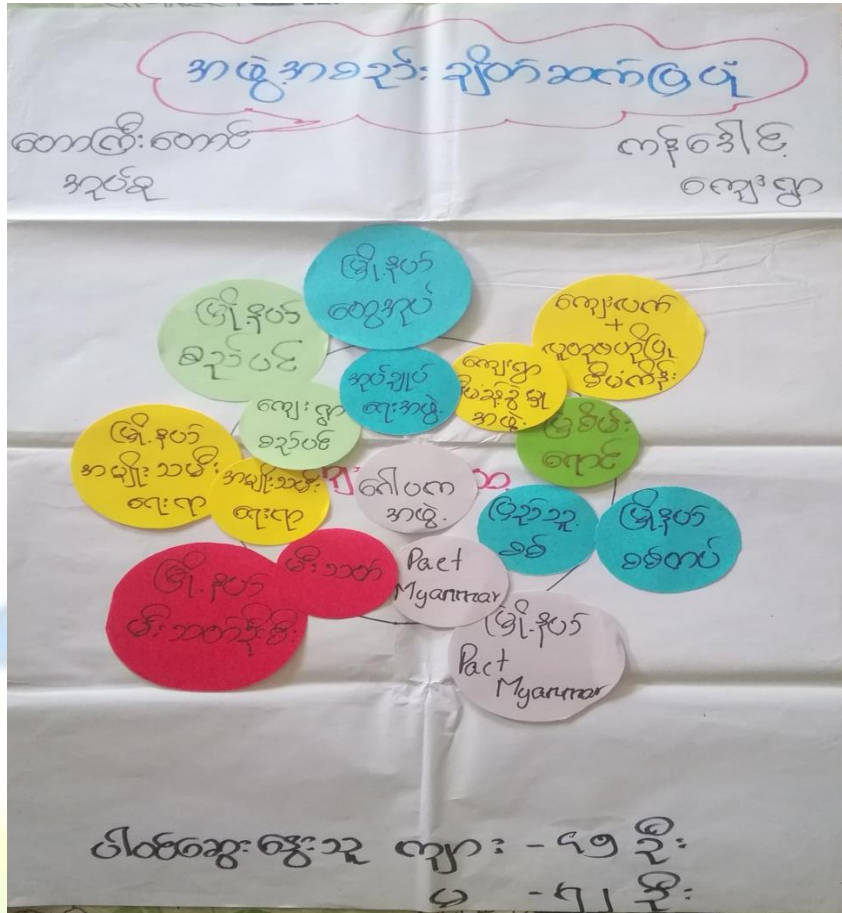 အဖွဲ့အစည်းချိတ်ဆက်ပြပုံ
တောကြီးတောင်
အုပ်စု
ကန်ဒေါင့်
ကျေးရွာ
မြို့နယ်
ထွေအုပ်
မြို့နယ်
စည်ပင်
ကျေးလက်
+
လူထုဗဟိုပြု
စီမံကိန်း
အုပ်ချုပ်
ရေးအဖွဲ့
ကျေးရွာ
စီမံခန့်ခွဲမှု
အဖွဲ့
ကျေးရွာ
စည်ပင်
မြစိမ်း
ရောင်
မြို့နယ်
အမျိုးသမီး
ရေးရာ
အမျိုးသမီး
ရေးရာ
ဂေါပက
အဖွဲ့
ပြည်သူ့
စစ်
မြို့နယ်
စစ်တပ်
မြို့နယ်
မီးသတ်ဦးစီး
မီးသတ်
Pact
Myanmar
မြို့နယ်
Pact
Myanmar
ပါဝင်ဆွေးနွေးသူ ကျား - ၎၅ ဦး
မ - ၅၂ ဦး